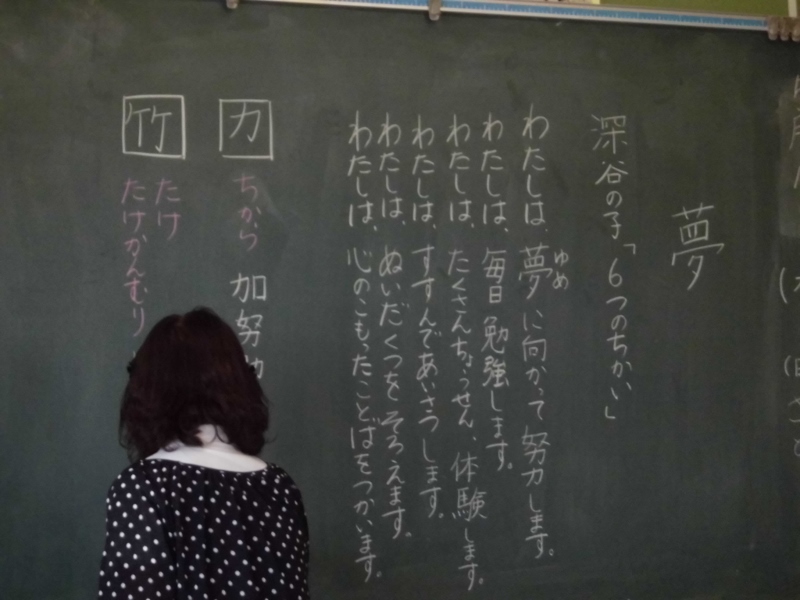 夢
深谷の子「6つのちかい」
わたしは、夢に向かって努力します。
ゆめ
わたしは、毎日勉強します。
わたしは、たくさんちょうせん、体験します。
わたしは、すすんであいさつします。
わたしは、ぬいだくつをそろえます。
わたしは、心のこもったことばをつかいます。
力 ちから 加努
竹 たけ
たけかんむり